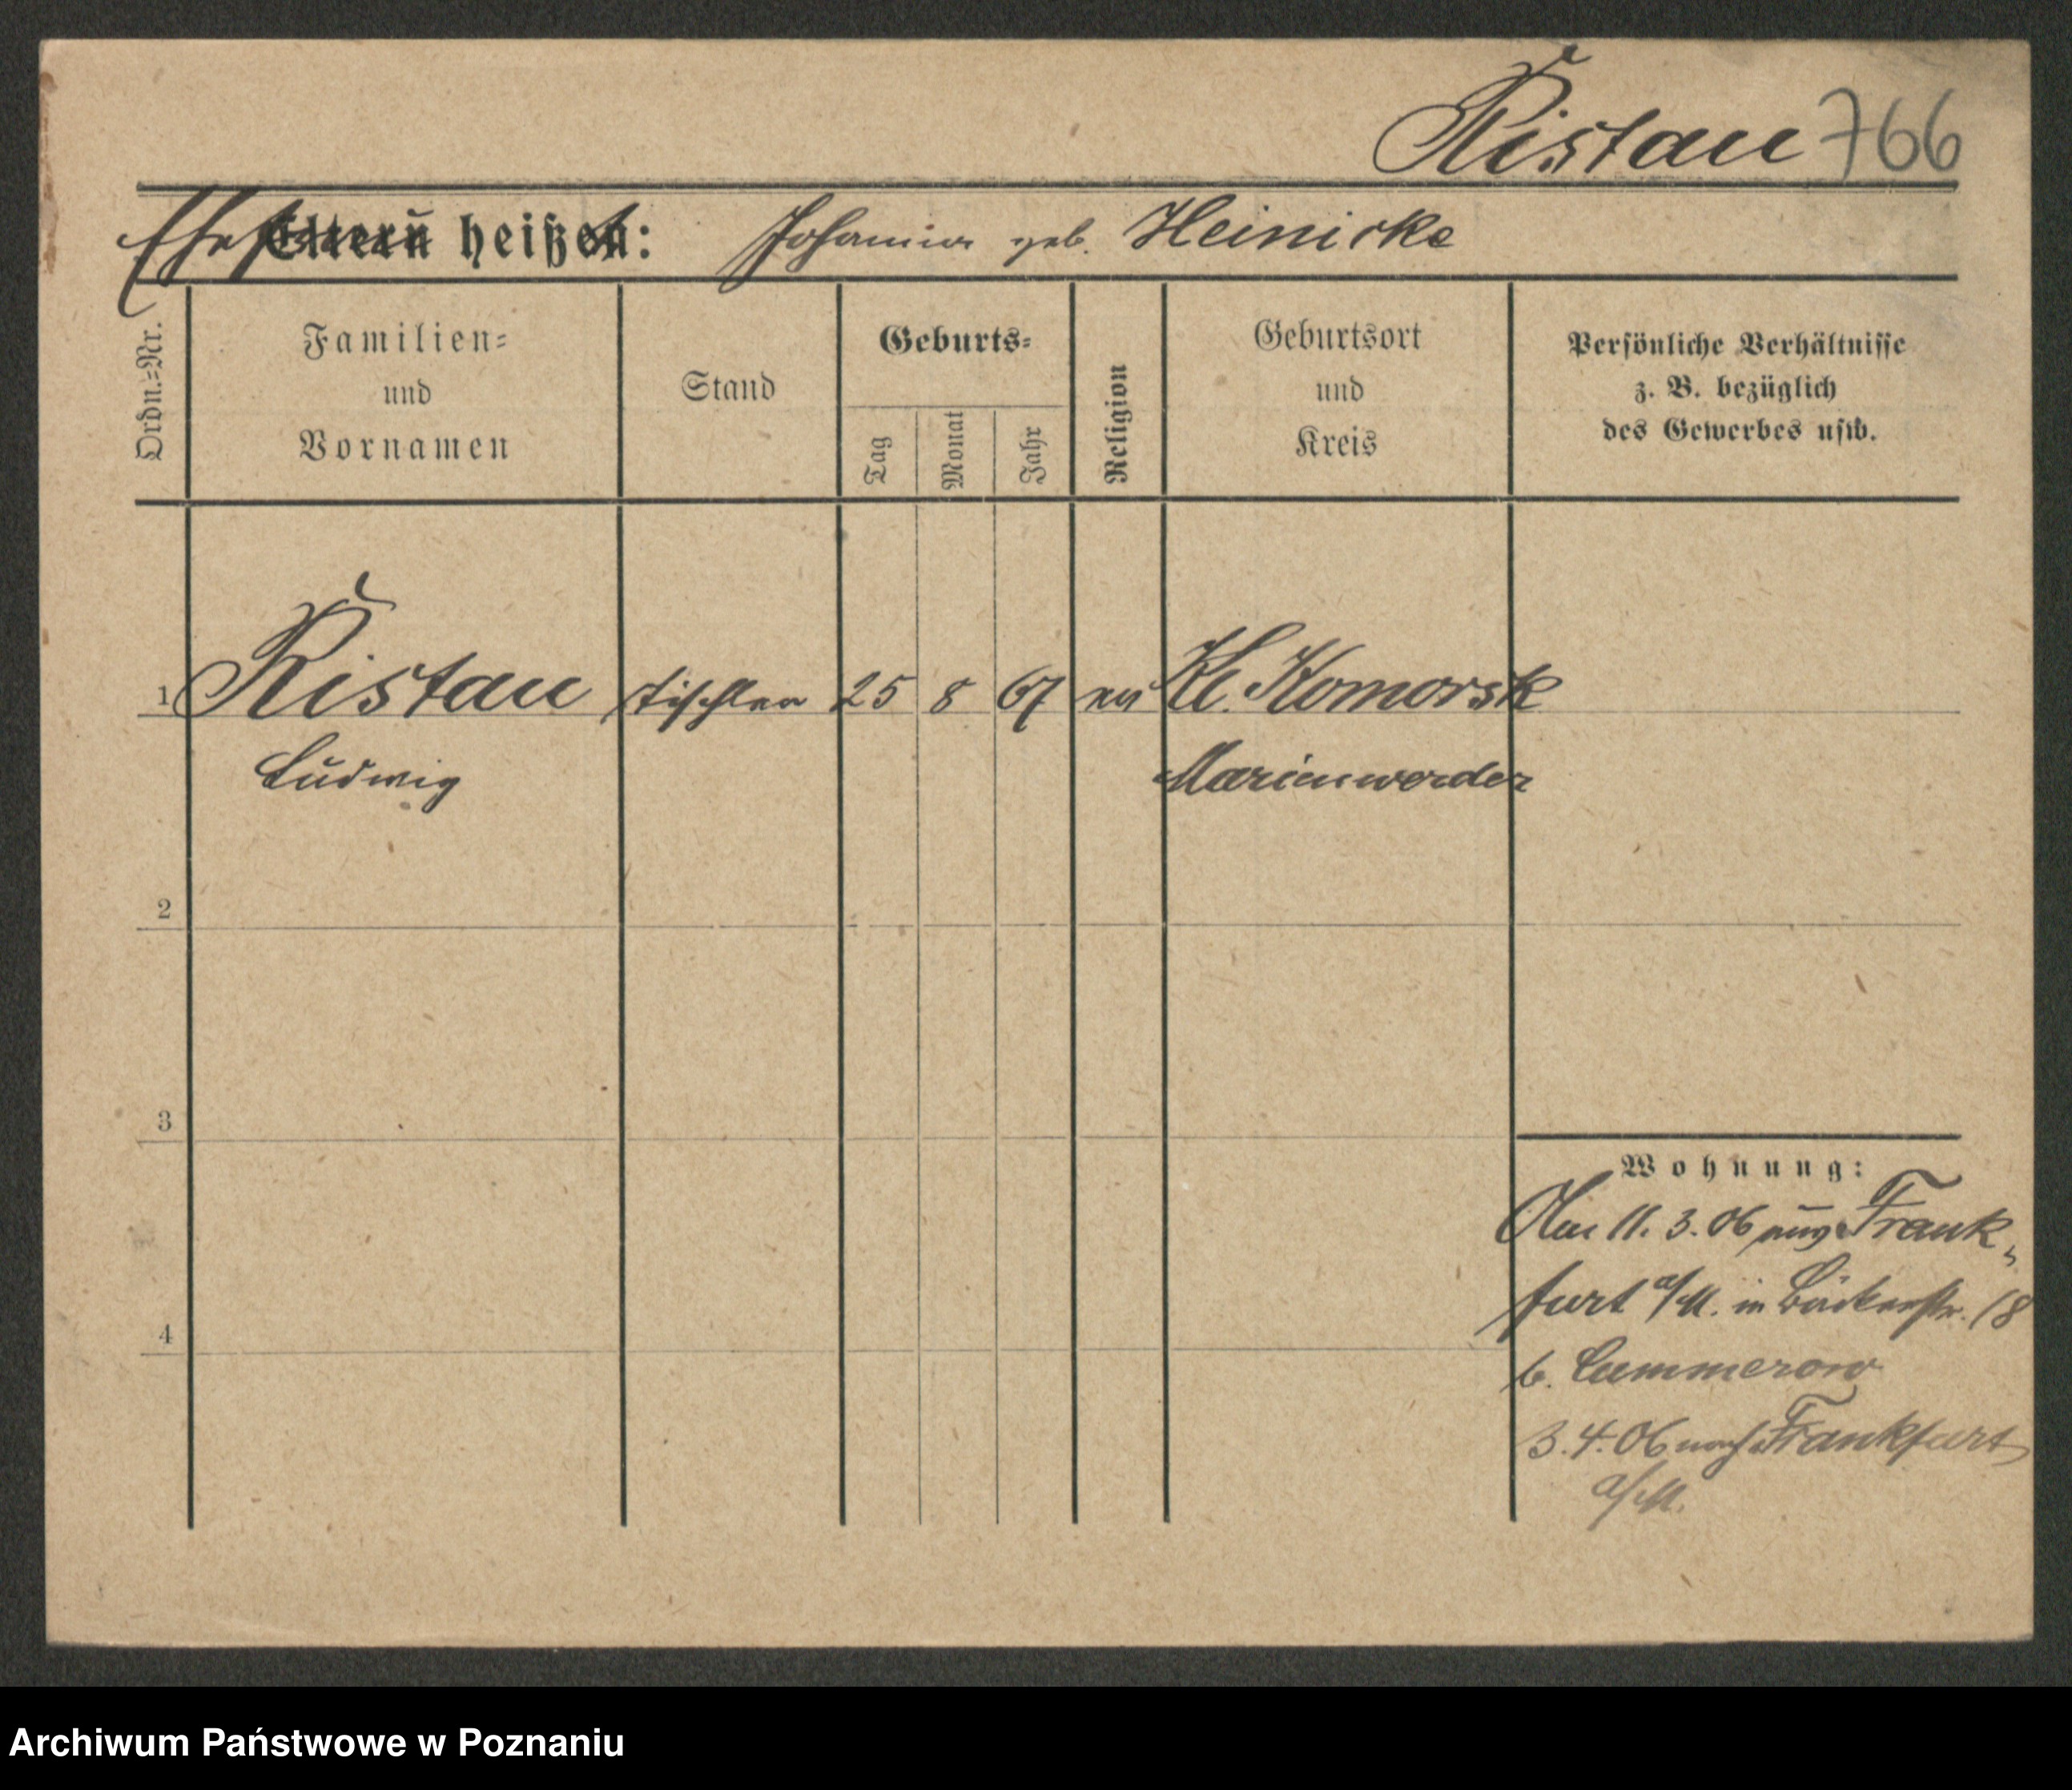 Ristau 766
Ehefrau heißt: Johanna geb. Heinicke
Ordn.=Nr.
Familien=
und
Vornamen
Stand
Geburts=
Tag
Monat
Jahr
Religion
Geburtsort
und
Kreis
Persönliche Verhältnisse
z. B. bezüglich
des Gewerbes usw.
1 Ristau Tischler 25 8 67 ev Kl. Komorsk
Ludwig Marienwerder
2
3
4
Wohnung:
Am 11. 3. 06 aus Frank„
furt a/M. in Bäckerstr. 18
b. Cummerow
3. 4. 06 nach Frankfurt
a/M.
Archiwum Państwowe w Poznaniu